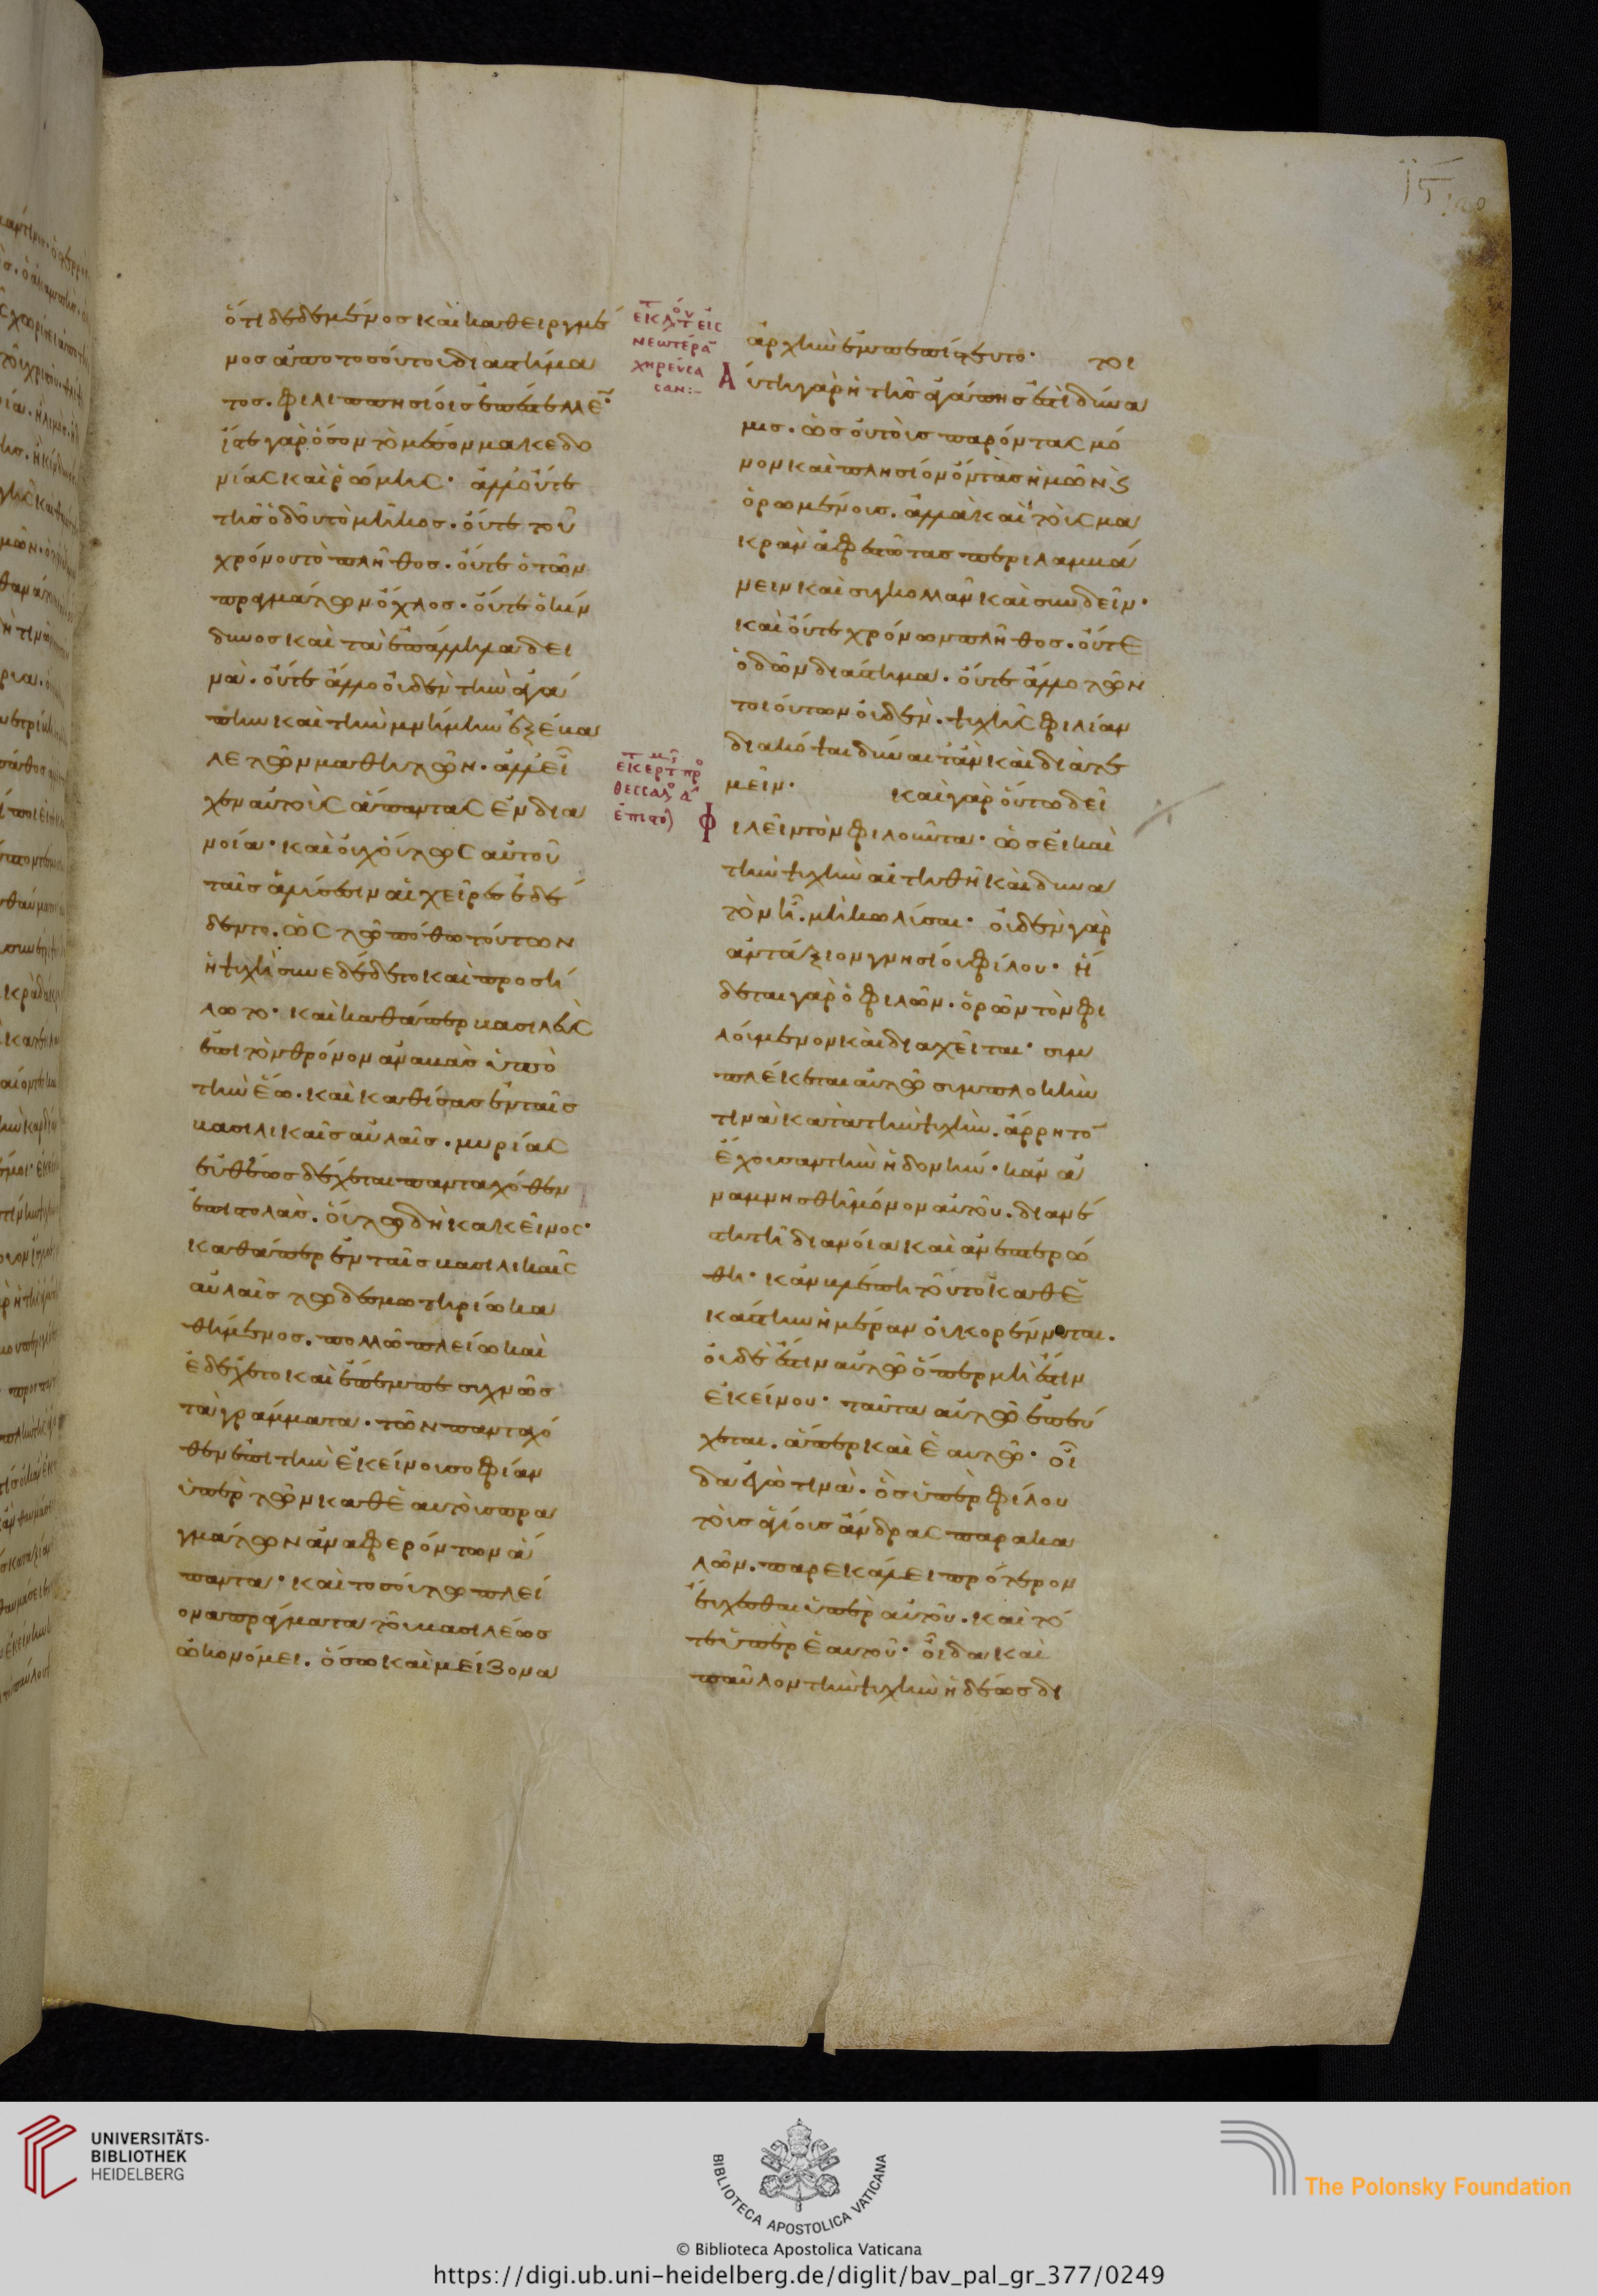 ὅτι δεδεμένος καὶ καθειργμέ
νος ἀπὸ τοσούτου διαστήμα
τος. φιλιππησίοις ἐπέστελλε·
ἴστε γὰρ ὅσον τὸ μέσον μακεδο
νίας καὶ ῥώμης· ἀλλ' οὔτε
τῆς ὁδοῦ τὸ μῆκος. οὔτε τοῦ
χρόνου τὸ πλῆθος. οὔτε ὁ τῶν
πραγμάτων ὄχλος. οὔτε ὁ κίν
δυνος καὶ τὰ ἐπάλληλα δει
νὰ. οὔτε ἄλλο οὐδὲν τὴν ἀγά
πην καὶ τὴν μνήμην ἐξέβα
λε τῶν μαθητῶν. ἀλλ' εἶ
χεν αὐτοὺς ἅπαντας ἐν δια
νοία· καὶ οὐχ οὕτως αὐτοῦ
ταῖς ἁλύσεσιν αἱ χεῖρες ἐδέ
δεντο. ὡς τῶ πόθω τούτων
ἡ ψυχὴ συνεδέδετο καὶ προσή
λωτο· καὶ καθάπερ βασιλεὺς
ἐπὶ τὸν θρόνον ἀναβὰς ὑπὸ
τὴν ἕω. καὶ καθίσας ἐν ταῖς
βασιλικαῖς αὐλαῖς. μυρίας
εὐθέως δέχεται πανταχόθεν
ἐπιστολὰς. οὕτω δὴ κακεῖνος·
καθάπερ ἐν ταῖς βασιλικαῖς
αὐλαῖς τῶ δεσμωτηρίω κα
θήμενος. πολλῶ πλείω καὶ
ἐδέχετο καὶ ἔπεμπε συχνῶς
τὰ γράμματα· τῶν πανταχό
θεν ἐπὶ τὴν ἐκείνου σοφίαν
ὑπὲρ τῶν καθ' ἑαυτοὺς πρα
γμάτων ἀναφερόντων ἅ
παντα· καὶ τοσούτω πλεί
ονα πράγματα τοῦ βασιλέως
ὠκονόμει. ὅσω καὶ μείζονα
τ ον
ἐκ λτ εἰς
νεωτέρα
χηρεύσα
σαν:-
ἀρχὴν ἐνεπεπίστευτο· τοι
Αύτη γὰρ ἡ τῆς ἀγάπης ἐστὶ δύνα
μις. ὡς οὐ τοὺς παρόντας μό
νον καὶ πλησίον ὄντας ἡμῶν κς
ὁρωμένους. ἀλλὰ καὶ τοὺς μα
κρὰν ἀφεστῶτας περιλαμβά
νειν καὶ συγκολλᾶν καὶ συνδεῖν·
καὶ οὔτε χρόνων πλῆθος. οὔτε
ὁδῶν διάστημα. οὔτε ἄλλο τῶν
τοιούτων οὐδὲν. ψυχῆς φιλίαν
διακόψαι δύναιτ' ἂν καὶ διατε
μεῖν· καὶ γὰρ οὕτω δεῖ
ἐκ ερτ πρ
θεσσαλο α
ἐπιστο
Φ ιλεῖν τὸν φιλοῦντα· ὡς εἰ καὶ
τὴν ψυχὴν αἰτηθῆ καὶ δυνα
τὸν ἦ. μὴ κωλύσαι· οὐδὲν γὰρ
ἀντάξιον γνησίου φίλου· ἥ
δεται γὰρ ὁ φιλῶν. ὁρῶν τὸν φι
λούμενον καὶ διαχεῖται· συμ
πλέκεται αὐτῶ συμπλοκὴν
τινὰ κατὰ τὴν ψυχὴν. ἄρρητον
ἔχουσαν τὴν ἡδονήν· κἂν ἀ
ναμνησθῆ μόνον αὐτοῦ. διανέ
στη τῆ διανοία καὶ ἀνεπτερώ
θη· κἂν βλέπη τοῦτον καθ' ἑ
κάστην ἡμέραν οὐ κορέννυται.
οὐδέ ἐστιν αὐτῶ ὅπερ μή ἐστιν
ἐκείνου· ταῦτα αὐτῶ ἐπεύ
χεται. ἅπερ καὶ ἑαυτῶ· οἶ
δα ἐγώ τινὰ. ὃς ὑπὲρ φίλου
τοὺς ἁγίους ἄνδρας παρακα
λῶν. παρεκάλει πρότερον
εὔχεσθαι ὑπὲρ αὐτοῦ. καὶ τό
τε ὑπὲρ ἑαυτοῦ· οἶδα καὶ
παῦλον τὴν ψυχὴν ἡδέως δι
UNIVERSITÄTS-
BIBLIOTHEK
HEIDELBERG
BIBLIOTECA APOSTOLICA VATICANA
The Polonsky Foundation
© Biblioteca Apostolica Vaticana
https://digi.ub.uni-heidelberg.de/diglit/bav_pal_gr_377/0249